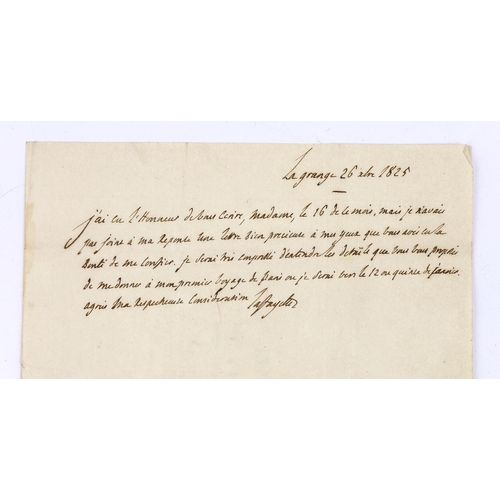 La grange 26 xbre 1825
j'ai eu l'honneur de vous Ecrire, Madame, le 16 de ce mois, mais je n'avais
pas joint à ma Reponse une lettre bien precieuse à mes yeux que vous aviés eu la
bonté de me confier. je serai très empressé d'entendre les details que vous vous proposés
de me donner à mon premier voyage de Paris ou je serai vers le 12 ou quinze de janvier.
agréés ma Respectueuse Consideration Lafayette